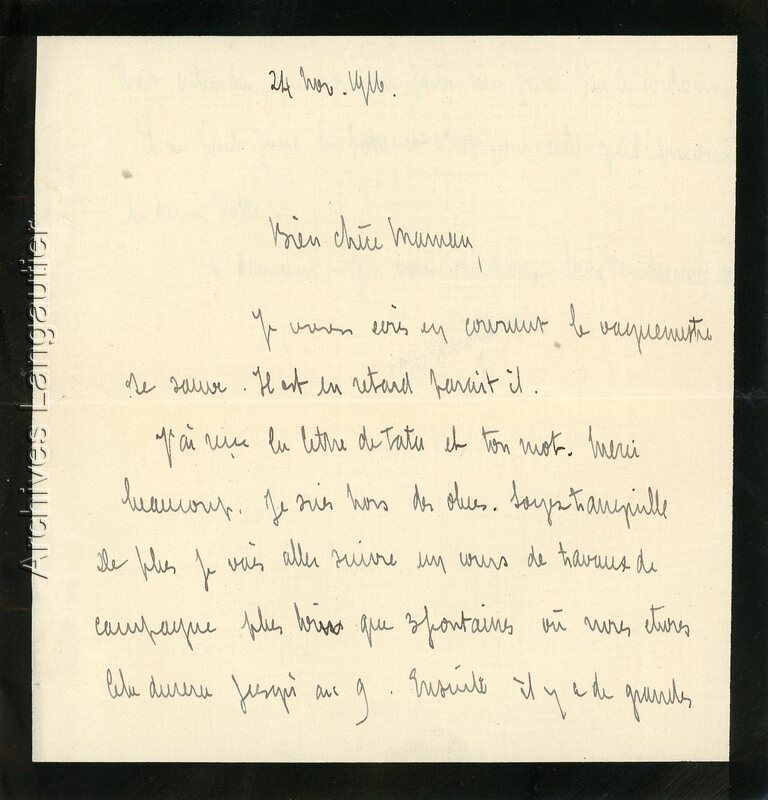 24 Nov. 1916.
Bien chère Maman,
Je vous écris en courant le vaguemestre
se sauve. Il est en retard parait il.
J'ai reçu la lettre de Tata et ton mot. Merci
beaucoup. Je suis hors des obus. Soyez tranquille
De plus je vais aller suivre un cours de travaux de
campagne plus loin que 3 fontaines où nous étions
Cela durera jusqu'au 9. Ensuite il y a de grandes
Archives Langautier